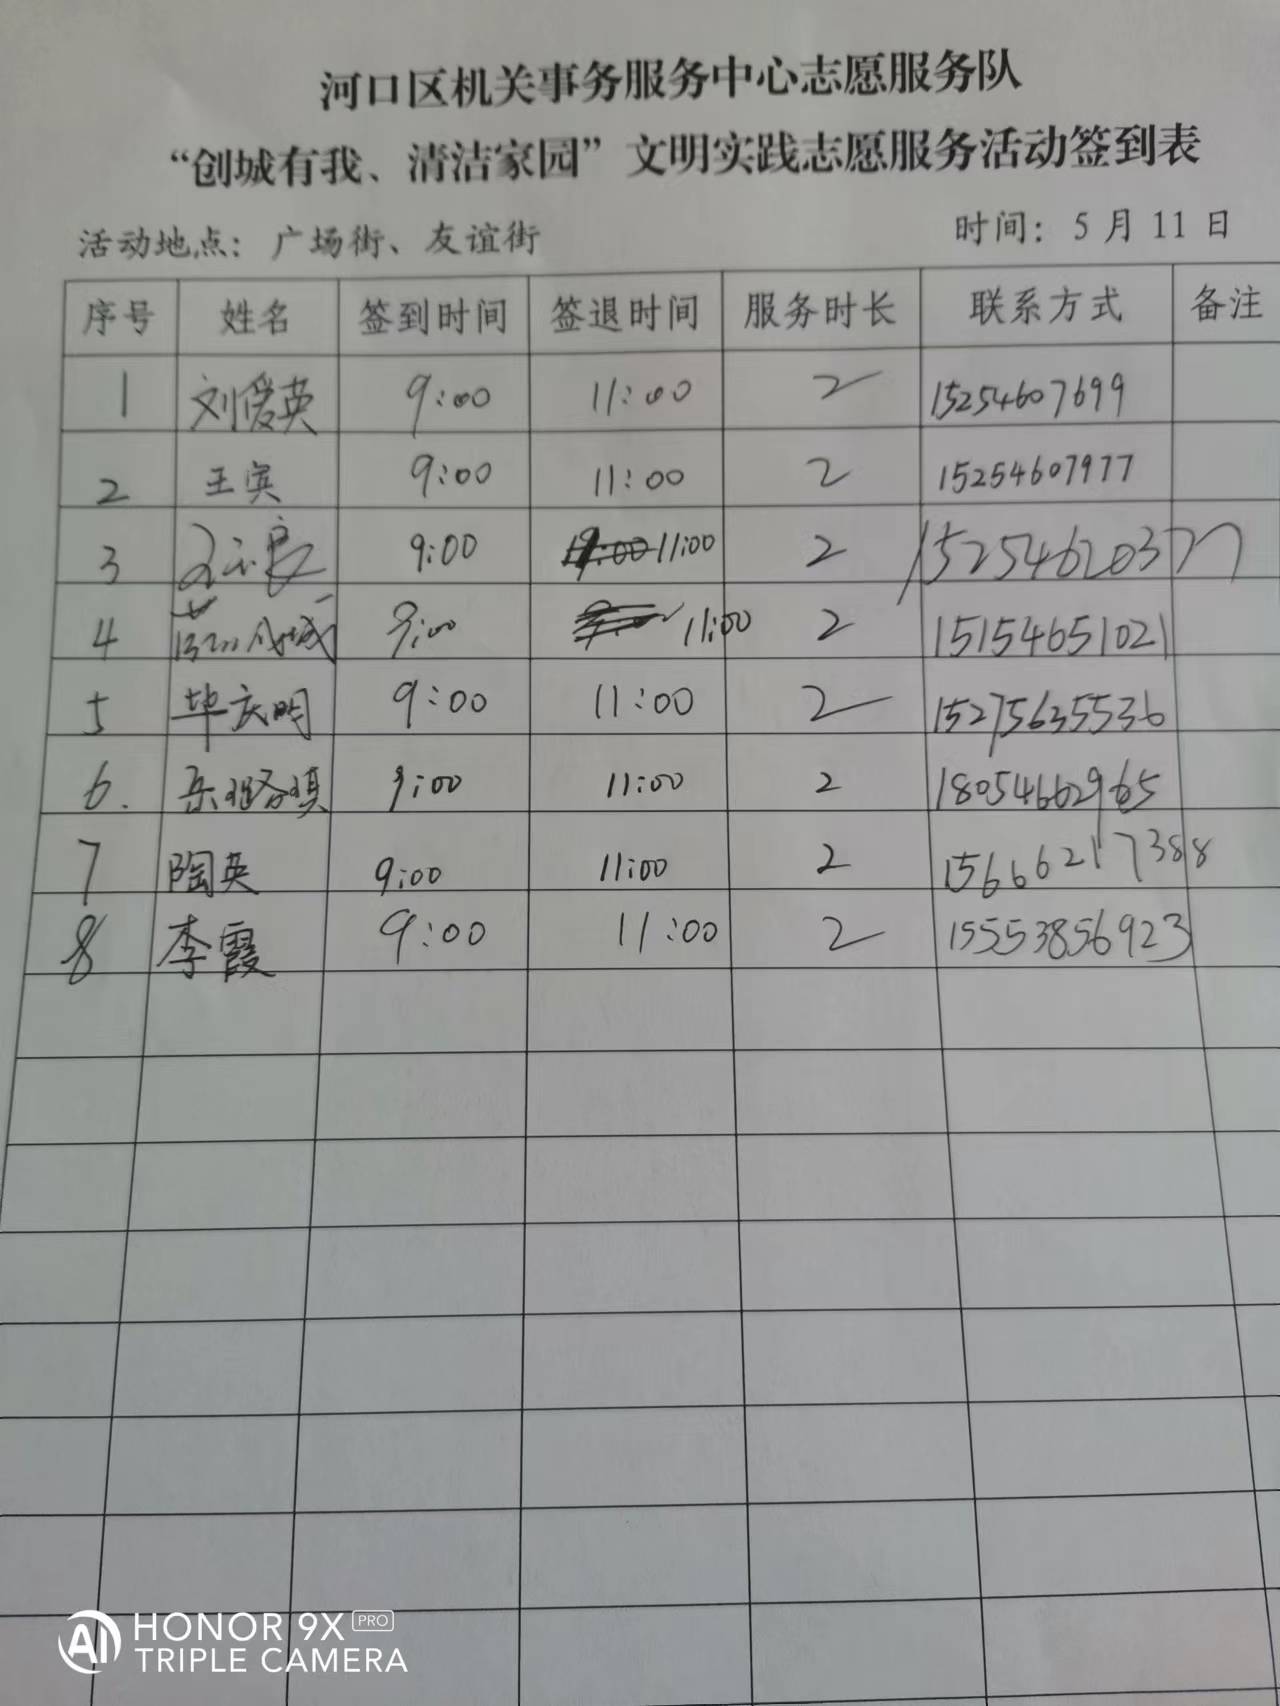 河口区机关事务服务中心志愿服务队
“创城有我、清洁家园”文明实践志愿服务活动签到表
活动地点：广场街、友谊街 时间：5月11日
序号 姓名 签到时间 签退时间 服务时长 联系方式 备注
1 刘爱英 9:00 11:00 2 15254607699
2 王宾 9:00 11:00 2 15254607977
3 9:00 11:00 2 15254620377
4 9:00 11:00 2 15154651021
5 毕庆明 9:00 11:00 2 15275635536
6. 岳璐琪 9:00 11:00 2 18054662965
7 陶英 9:00 11:00 2 15666217388
8 李霞 9:00 11:00 2 15553856923
AI HONOR 9X PRO
TRIPLE CAMERA